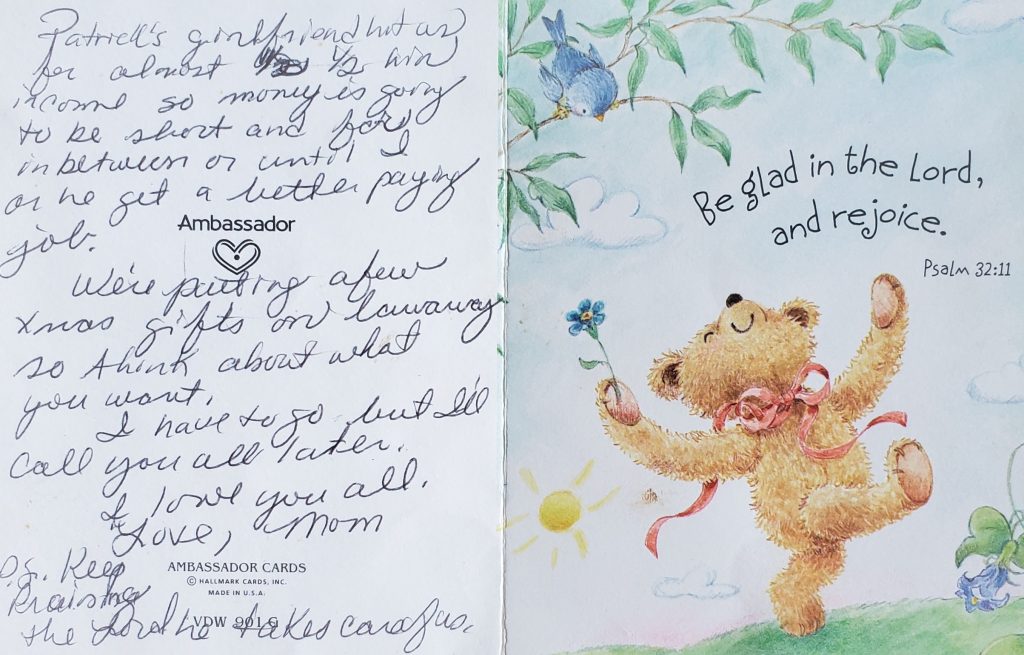 Patrick's girlfriend hit us
for almost 1/2 his
income so money is going
to be short and far
in between or until I
or he get a better paying
job.
Ambassador
We're putting a few
Xmas gifts on lawaway
so think about what
you want.
I have to go but I'll
call you all later.
I love you all.
Love, Mom
AMBASSADOR CARDS
© HALLMARK CARDS, INC.
MADE IN U.S.A.
P.S. Keep
Praising
the Lord he takes care of us.
VDW 901-9
Be glad in the Lord,
and rejoice.
Psalm 32:11